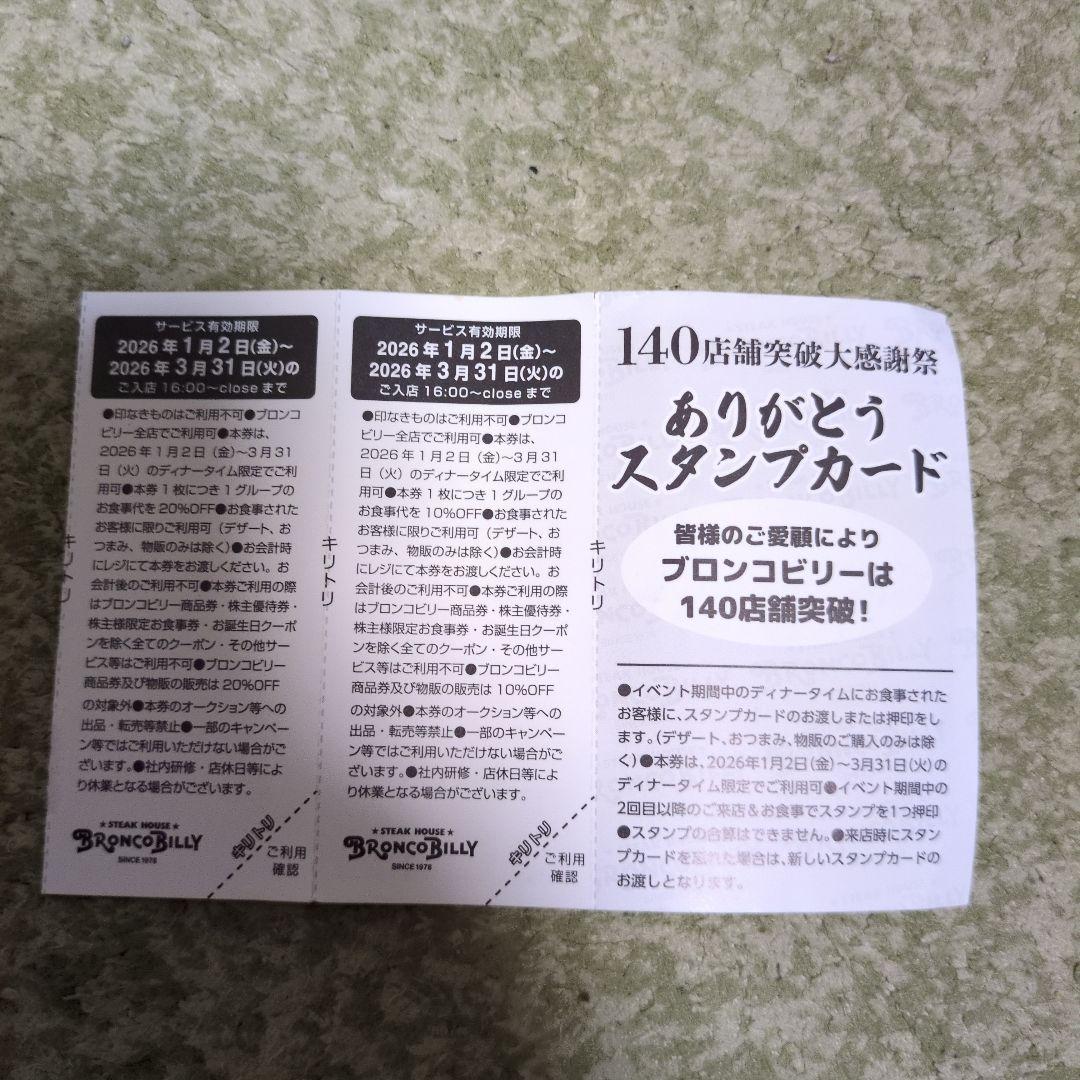 サービス有効期限
2026年1月2日(金)〜
2026年3月31日(火)の
ご入店16:00〜closeまで
●印なきものはご利用不可●ブロンコ
ビリー全店でご利用可●本券は、
2026年1月2日（金）〜3月31
日（火）のディナータイム限定でご利
用可●本券1枚につき1グループの
お食事代を20%OFF●お食事された
お客様に限りご利用可（デザート、お
つまみ、物販のみは除く）●お会計時
にレジにて本券をお渡しください。お
会計後のご利用不可●本券ご利用の際
はブロンコビリー商品券・株主優待券・
株主様限定お食事券・お誕生日クーポ
ンを除く全てのクーポン・その他サー
ビス等はご利用不可●ブロンコビリー
商品券及び物販の販売は20%OFF
の対象外●本券のオークション等への
出品・転売等禁止●一部のキャンペー
ン等ではご利用いただけない場合がご
ざいます。●社内研修・店休日等によ
り休業となる場合がございます。
★STEAK HOUSE★
BRONCOBILLY
SINCE 1978
キリトリ
ご利用
確認
キリトリ
サービス有効期限
2026年1月2日(金)〜
2026年3月31日(火)の
ご入店16:00〜closeまで
●印なきものはご利用不可●ブロンコ
ビリー全店でご利用可●本券は、
2026年1月2日（金）〜3月31
日（火）のディナータイム限定でご利
用可●本券1枚につき1グループの
お食事代を10%OFF●お食事された
お客様に限りご利用可（デザート、お
つまみ、物販のみは除く）●お会計時
にレジにて本券をお渡しください。お
会計後のご利用不可●本券ご利用の際
はブロンコビリー商品券・株主優待券・
株主様限定お食事券・お誕生日クーポ
ンを除く全てのクーポン・その他サー
ビス等はご利用不可●ブロンコビリー
商品券及び物販の販売は10%OFF
の対象外●本券のオークション等への
出品・転売等禁止●一部のキャンペー
ン等ではご利用いただけない場合がご
ざいます。●社内研修・店休日等によ
り休業となる場合がございます。
★STEAK HOUSE★
BRONCOBILLY
SINCE 1978
キリトリ
ご利用
確認
キリトリ
キリトリ
140店舗突破大感謝祭
ありがとう
スタンプカード
皆様のご愛顧により
ブロンコビリーは
140店舗突破！
●イベント期間中のディナータイムにお食事された
お客様に、スタンプカードのお渡しまたは押印をし
ます。(デザート、おつまみ、物販のご購入のみは除
く)●本券は、2026年1月2日(金)〜3月31日(火)の
ディナータイム限定でご利用可●イベント期間中の
2回目以降のご来店＆お食事でスタンプを1つ押印
●スタンプの合算はできません。●来店時にスタン
プカードを忘れた場合は、新しいスタンプカードの
お渡しとなります。